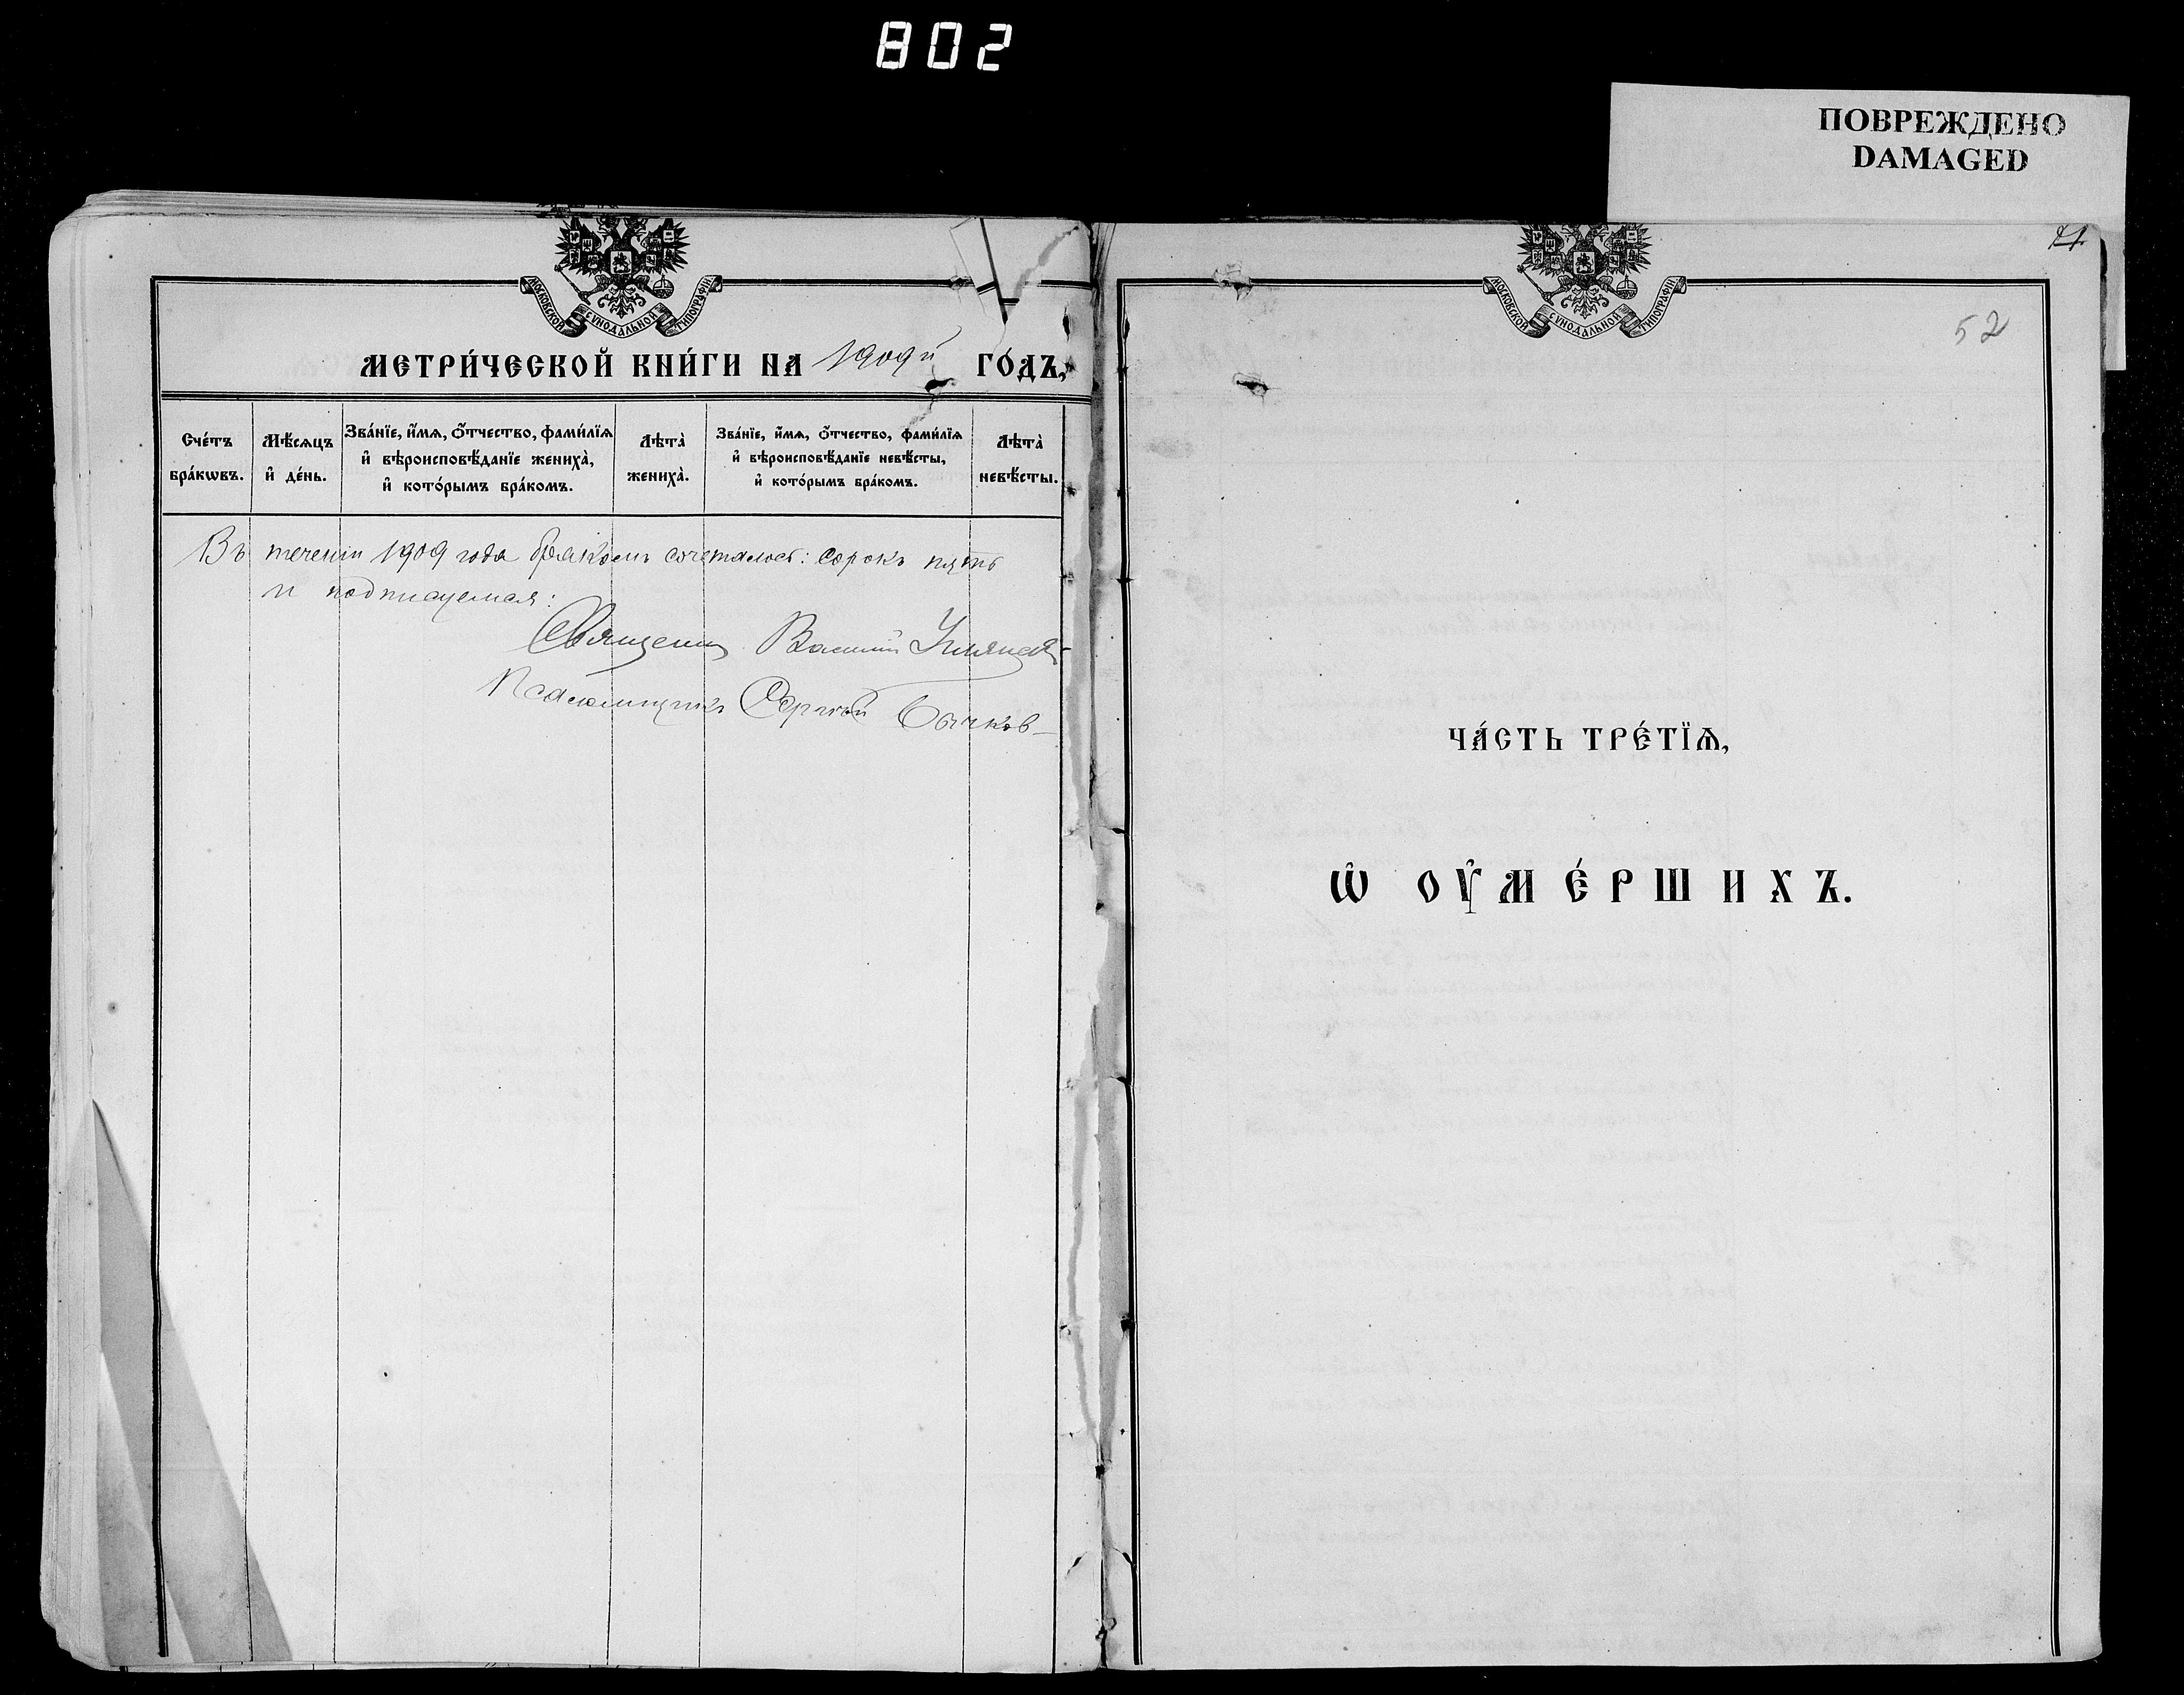 802
ПОВРЕЖДЕНО
DAMAGED
МОСКОВСКОЙ СѴНОДАЛЬНОЙ ТИПОГРАФІИ
МЕТРИ́ЧЕСКОЙ КНИ́ГИ НА 1909й ГО́ДЪ,
Сче́тъ бра́кѡвъ.
Мѣ́сѧцъ и҆ де́нь.
Зва́нїе, и҆́мѧ, ѻ҆́тчество, фами́лїѧ
и҆ вѣроисповѣ́данїе жениха̀,
и҆ кото́рымъ бра́комъ.
Лѣта̀ жениха̀.
Зва́нїе, и҆́мѧ, ѻ҆́тчество, фами́лїѧ
и҆ вѣроисповѣ́данїе невѣ́сты,
и҆ кото́рымъ бра́комъ.
Лѣта̀ невѣ́сты.
Въ течении 1909 года бракомъ сочеталось: сорокъ пять
и подписуемся:
Священн Василий
Псаломщикъ Сергѣй Бычков
МОСКОВСКОЙ СѴНОДАЛЬНОЙ ТИПОГРАФІИ
52
ЧА́СТЬ ТРЕ́ТЇѦ,
Ѡ҆ ОУ҆МЕ́РШИХЪ.